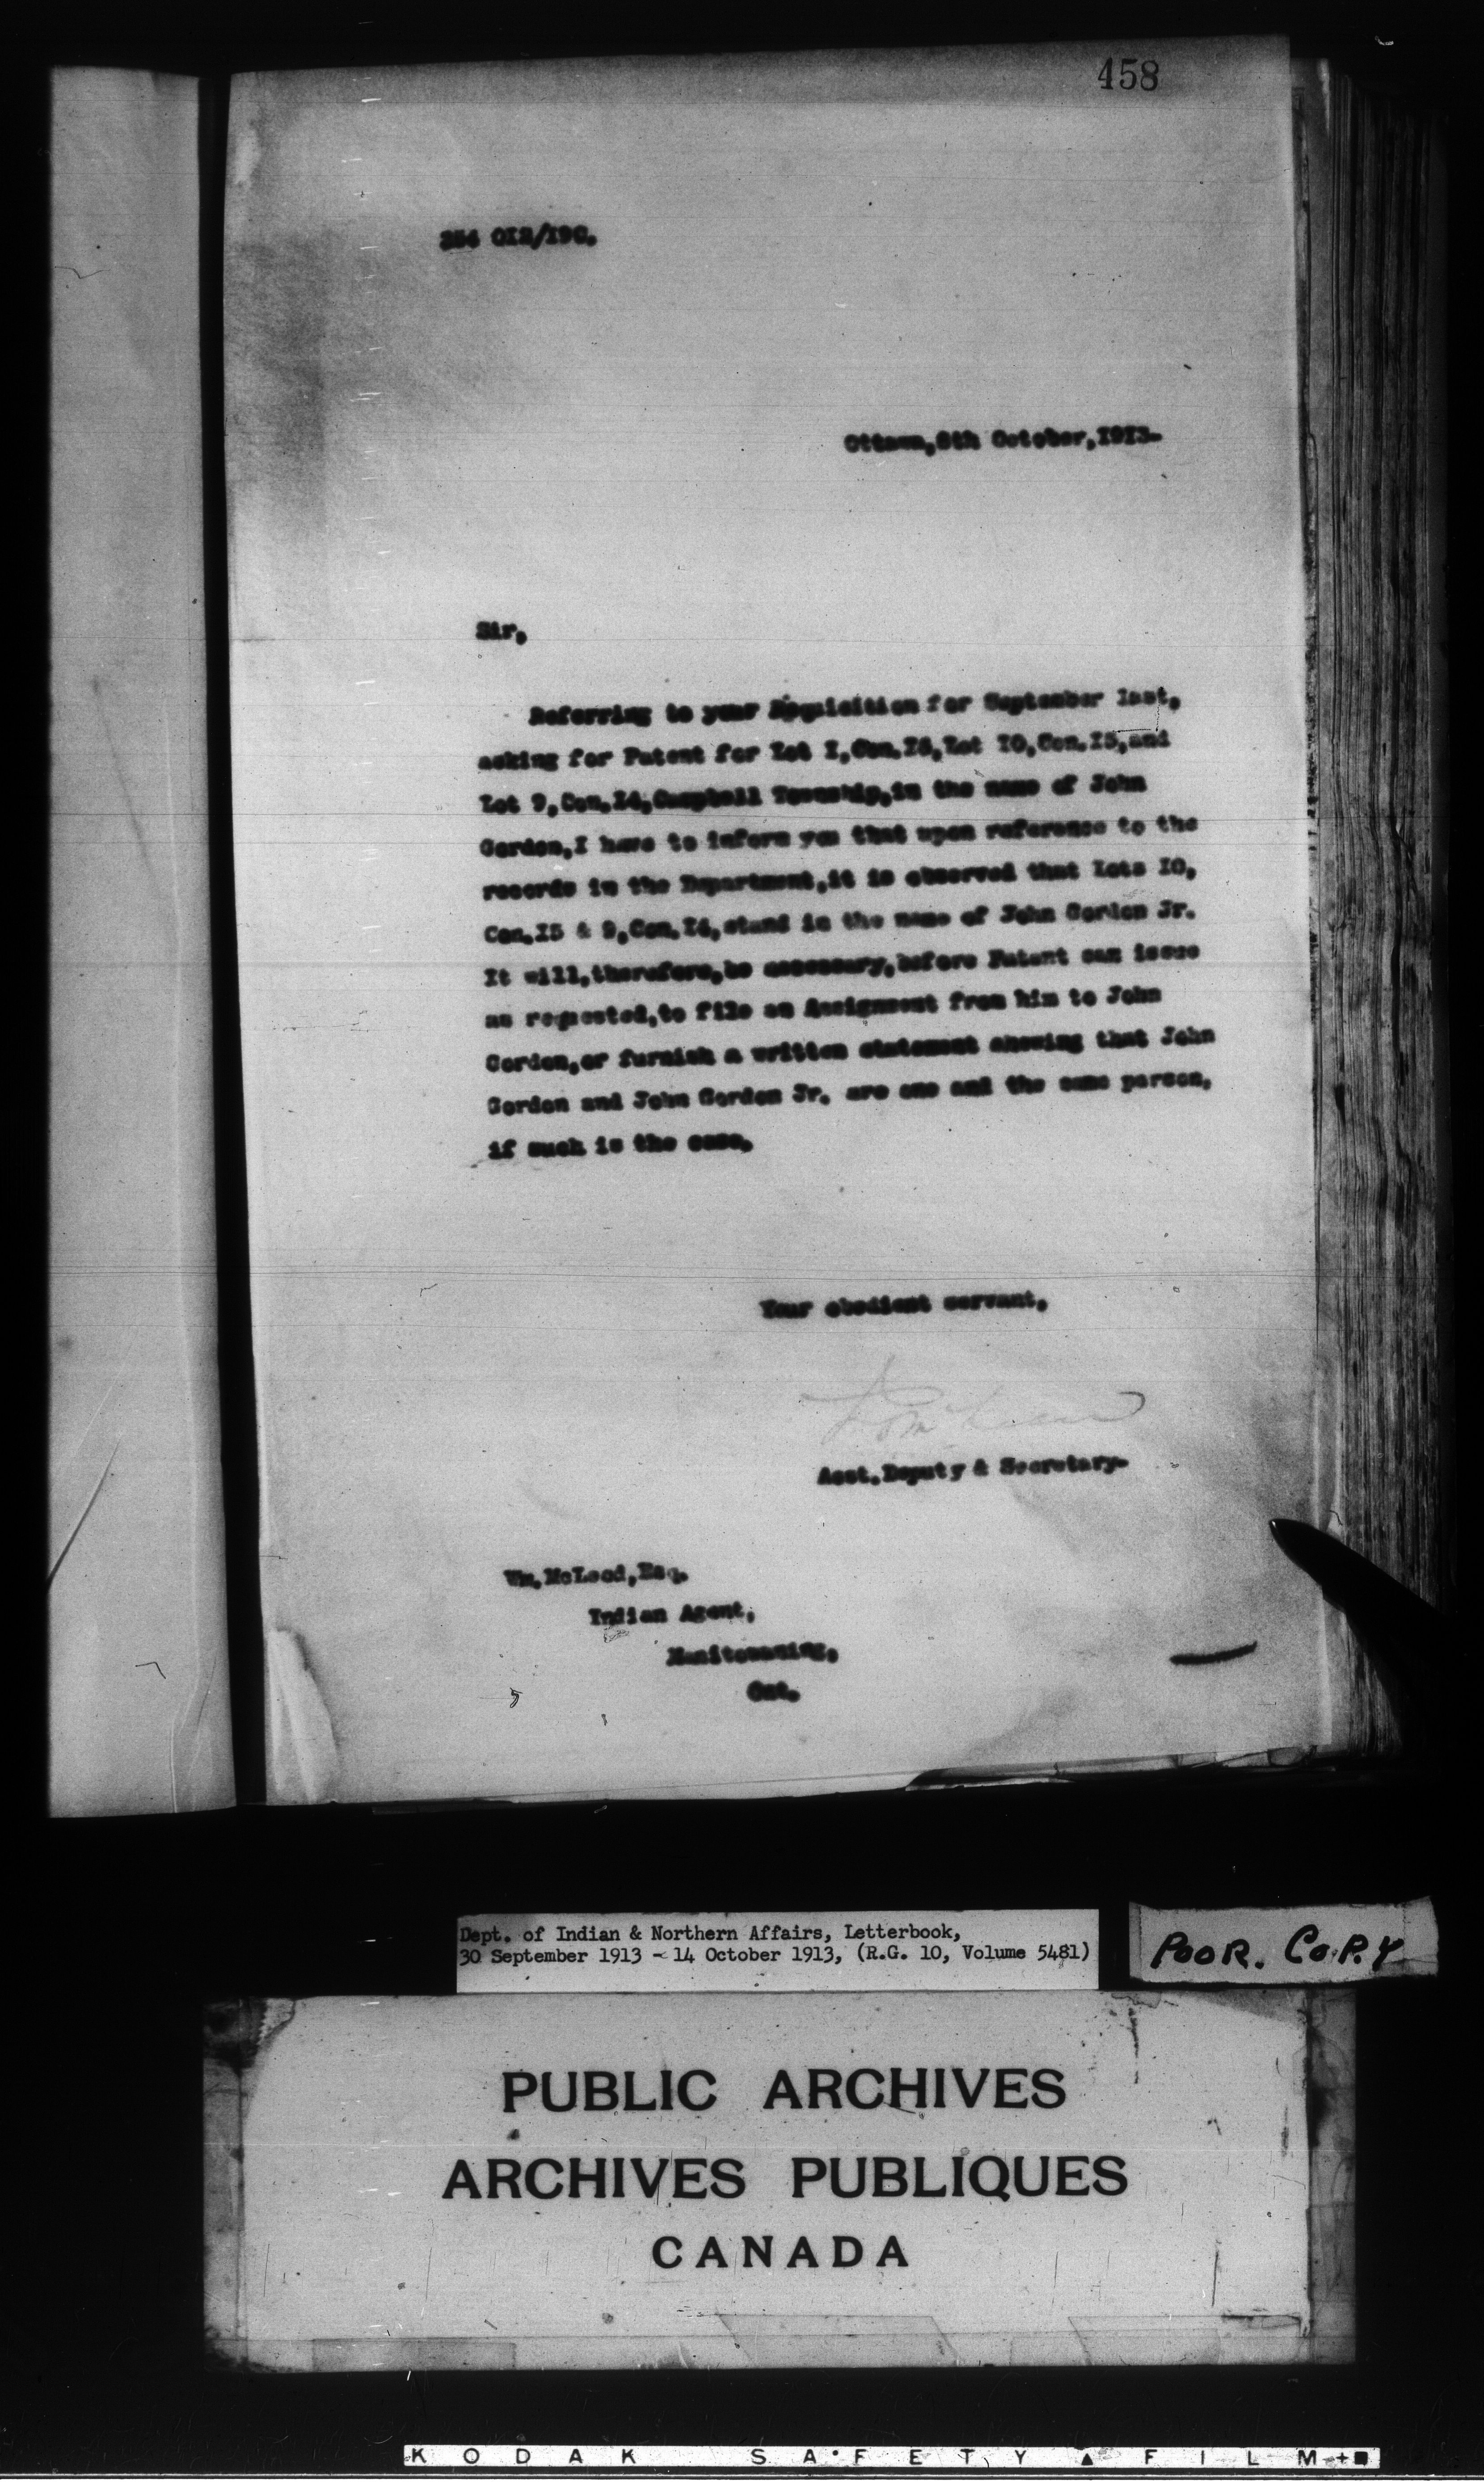 458
Ottawa, 8th October, 1913.
Sir,
Referring to your Requisition for September last,
asking for Patent for Lot I, Con. , Lot IO, Con. I5, and
Lot 9, Con. I4, Campbell Township, in the name of John
Gordon, I have to inform you that upon reference to the
records in the Department, it is observed that Lots IO,
Con. I5 & 9, Con. I4, stand in the name of John Gordon Jr.
It will, therefore, be necessary, before Patent can issue
as requested, to file an Assignment from him to John
Gordon, or furnish a written statement showing that John
Gordon and John Gordon Jr. are one and the same person,
if such is the case.
Your obedient servant,
Asst. Deputy & Secretary.
Wm. McLeod, Esq.
Indian Agent,
Manitowaning,
Ont.
Dept. of Indian & Northern Affairs, Letterbook,
30 September 1913 - 14 October 1913, (R.G. 10, Volume 5481)
POOR. COPY
PUBLIC ARCHIVES
ARCHIVES PUBLIQUES
CANADA
KODAK SAFETY FILM